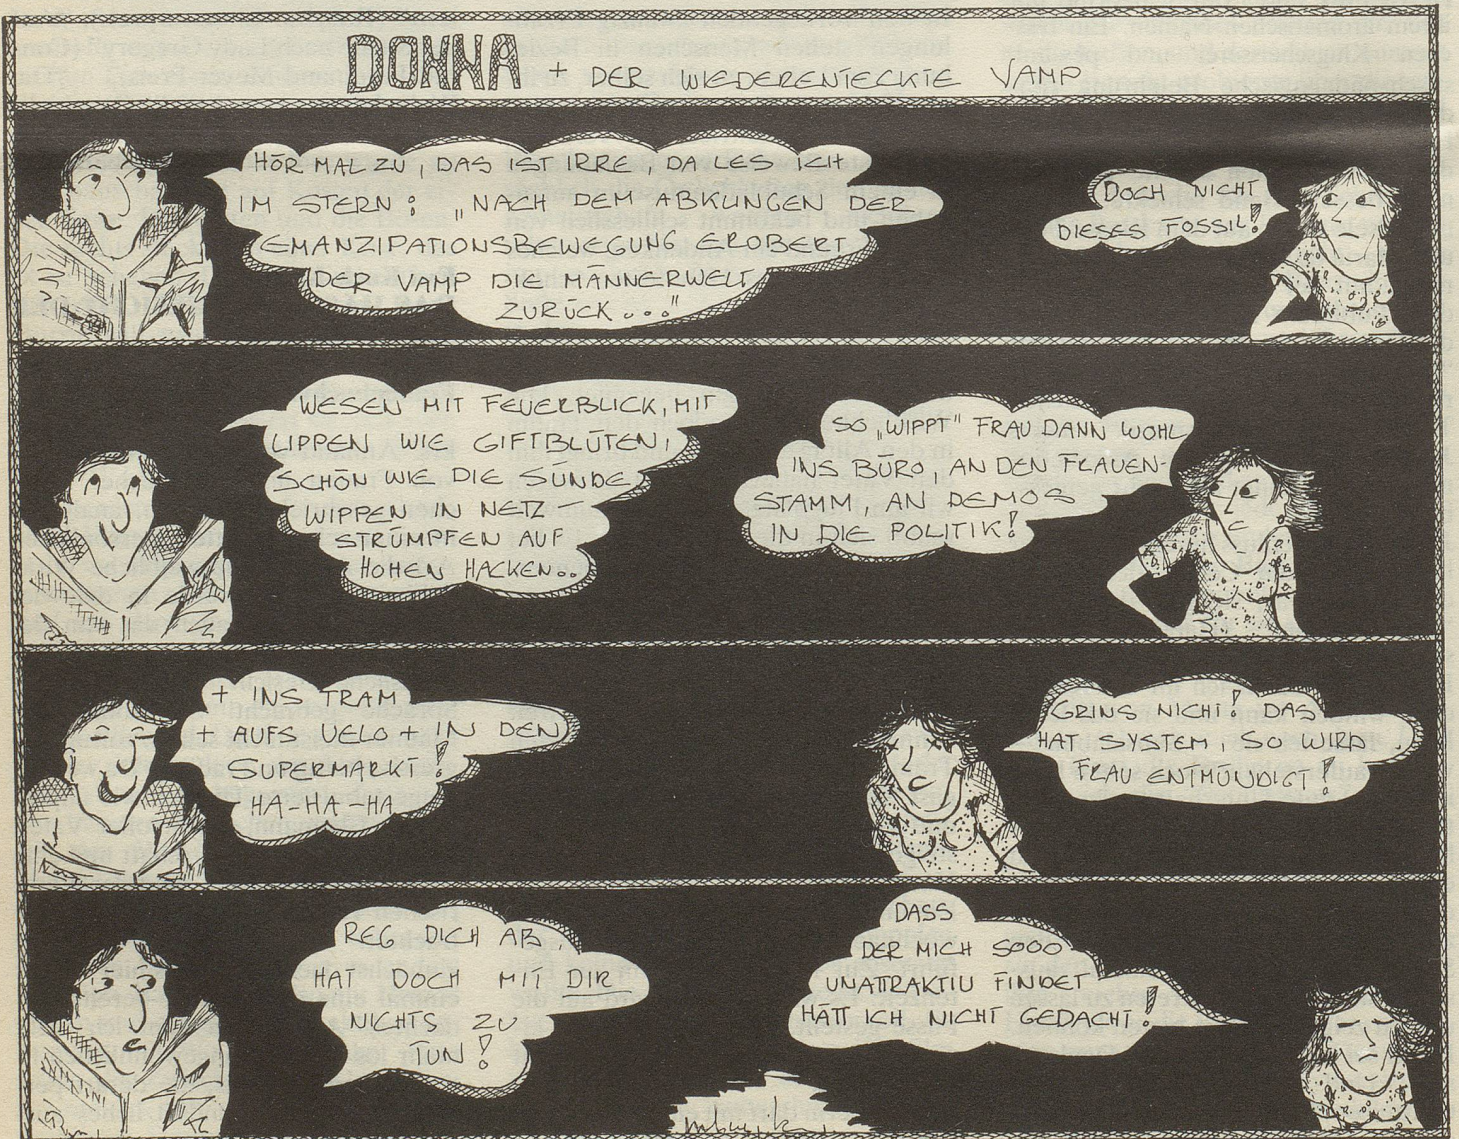 DONNA + DER WIEDERENTECKTE VAMP
HÖR MAL ZU, DAS IST IRRE, DA LES ICH
IM STERN: „NACH DEM ABKLINGEN DER
EMANZIPATIONSBEWEGUNG EROBERT
DER VAMP DIE MÄNNERWELT
ZURÜCK..."
DOCH NICHT
DIESES FOSSIL!
WESEN MIT FEUERBLICK, MIT
LIPPEN WIE GIFTBLÜTEN,
SCHÖN WIE DIE SÜNDE
WIPPEN IN NETZ-
STRÜMPFEN AUF
HOHEN HACKEN..
SO „WIPPT" FRAU DANN WOHL
INS BÜRO, AN DEN FRAUEN-
STAMM, AN DEMOS
IN DIE POLITIK!
+ INS TRAM
+ AUFS VELO + IN DEN
SUPERMARKT!
HA-HA-HA
GRINS NICHT! DAS
HAT SYSTEM, SO WIRD
FRAU ENTMÜNDIGT!
REG DICH AB,
HAT DOCH MIT DIR
NICHTS ZU
TUN!
DASS
DER MICH SOOO
UNATTRAKTIV FINDET
HÄTT ICH NICHT GEDACHT!